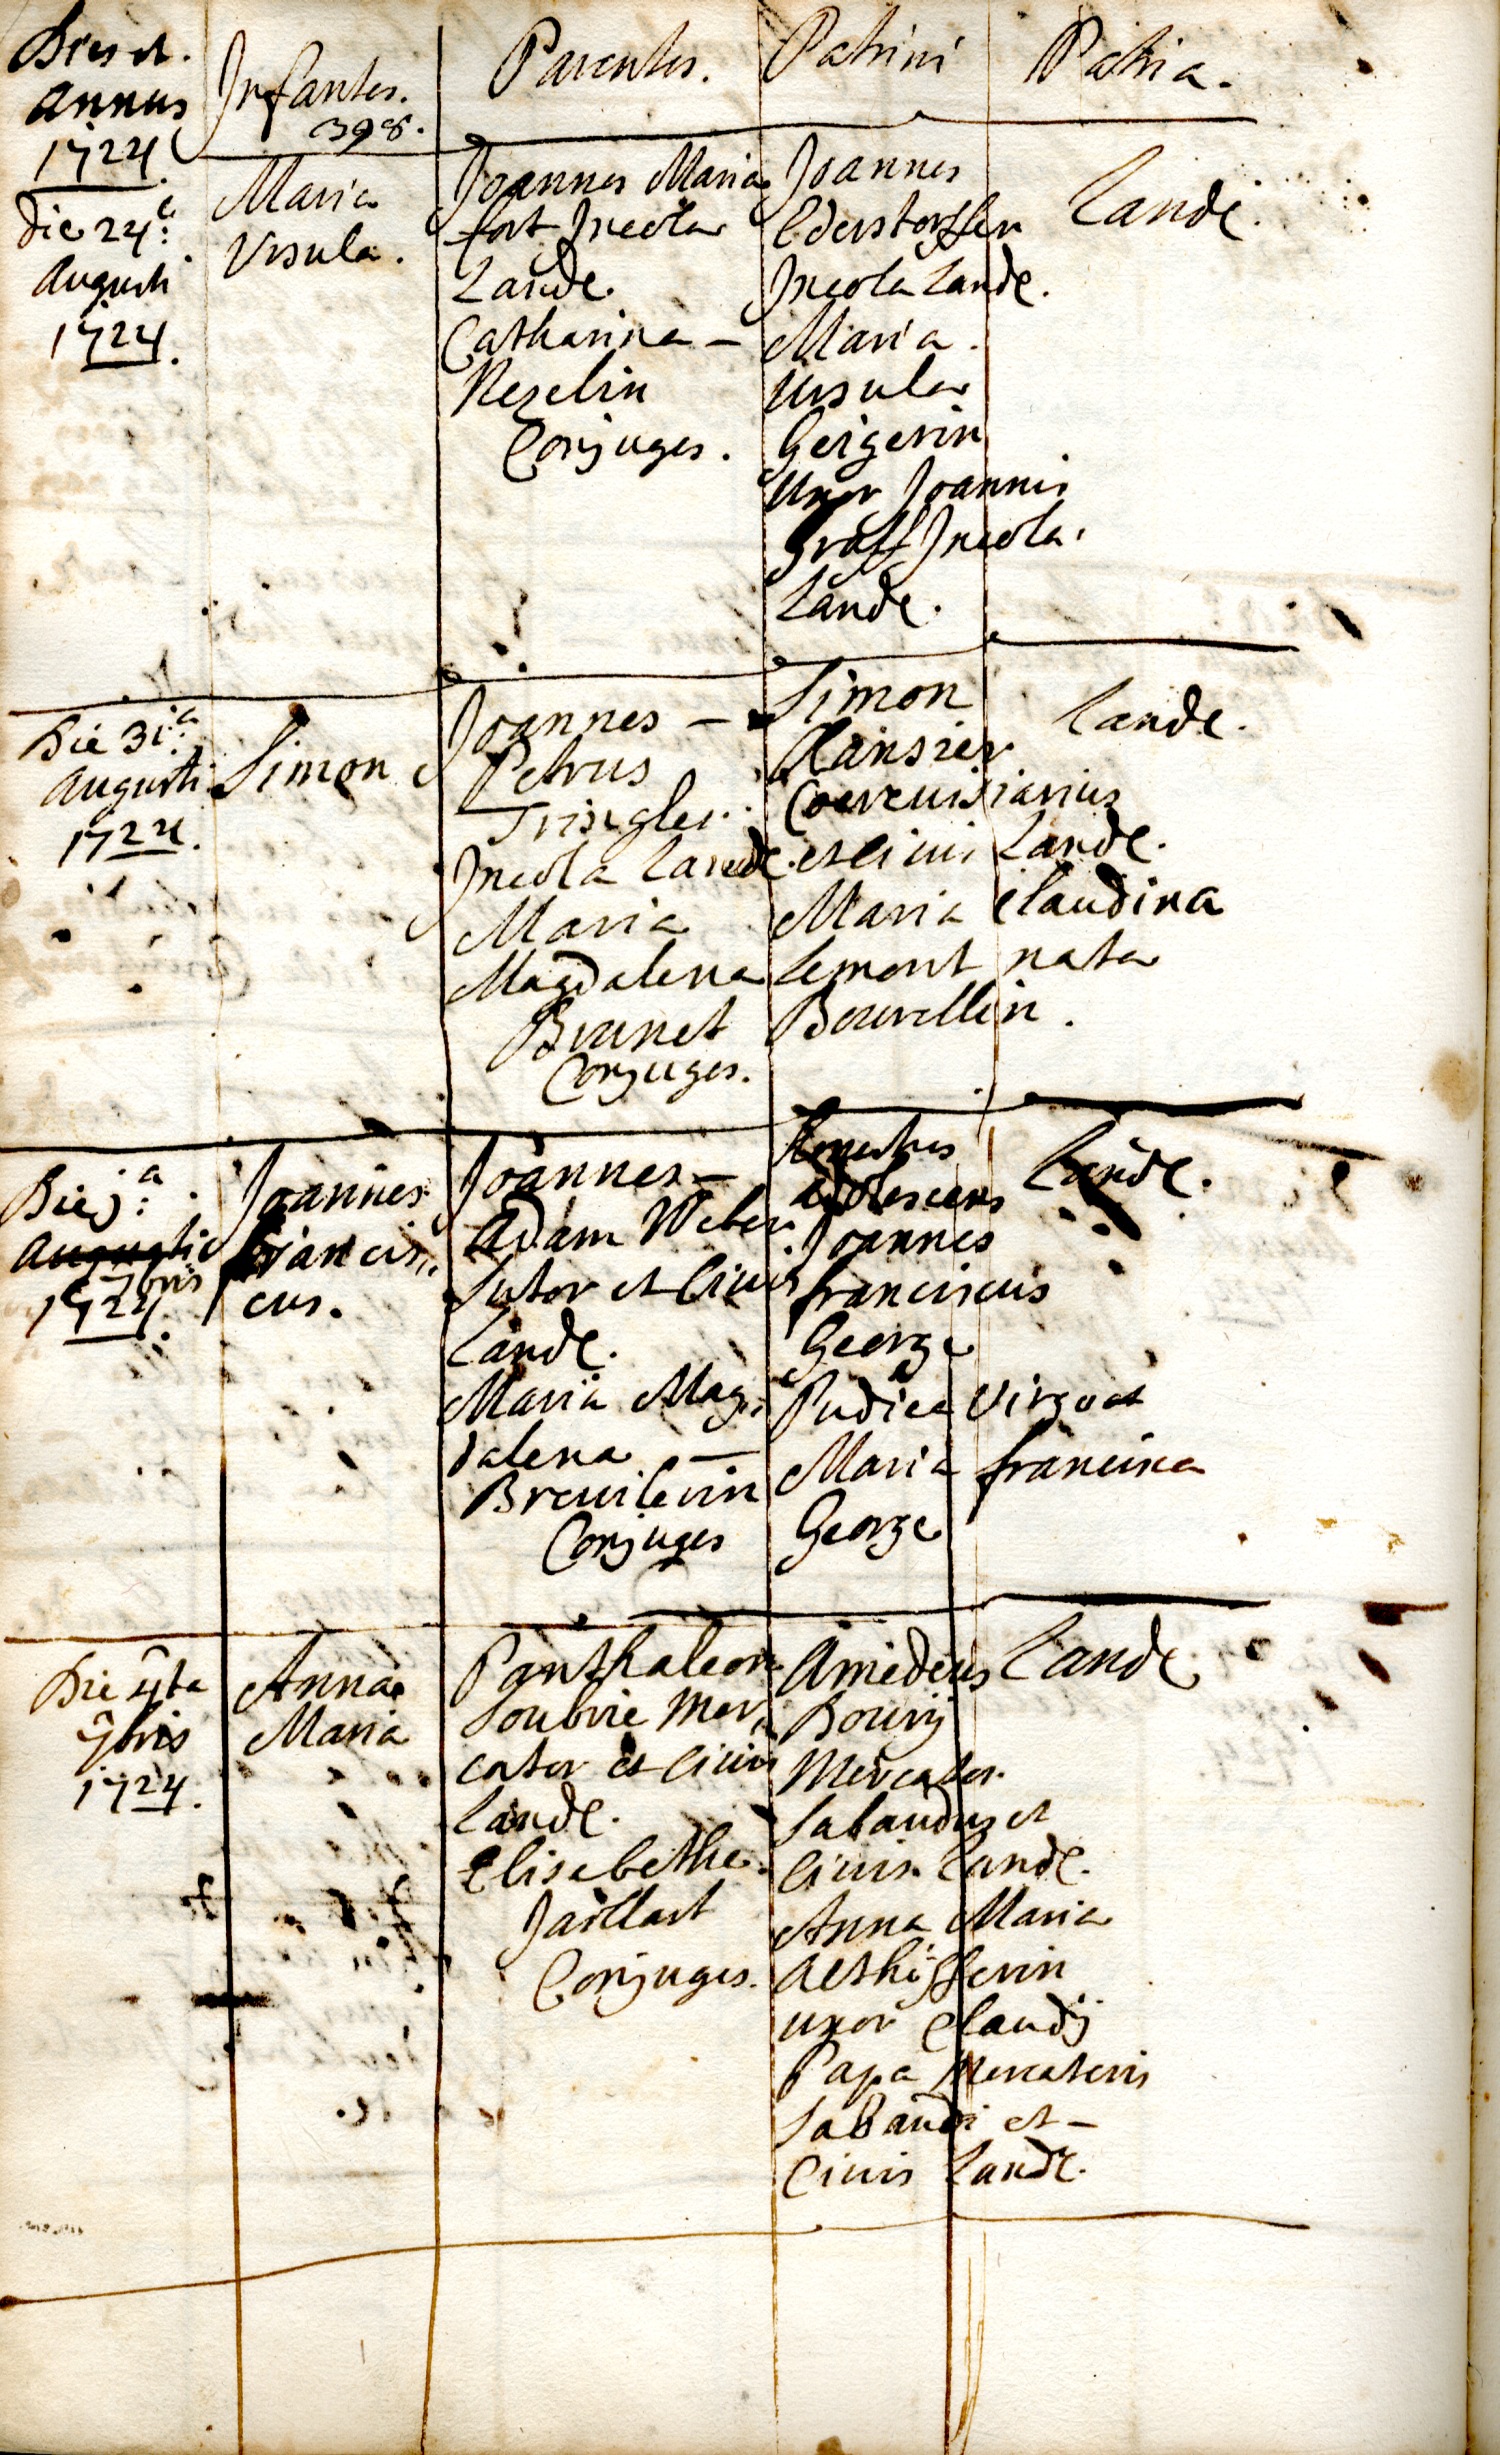 Dies et.
annus
1724.
Infantes.
398.
Parentes.
Patrini
Patria.
die 24a:
Augusti
1724.
Maria
Ursula.
Joannes Maria
fort Incola
Landæ.
Catharina –
Reselin
Conjuges.
Joannes
Ederstorffer
Incola Landæ.
Maria.
Ursula
Geigerin
Uxor Joannis
Graff Incola
Landæ.
Landæ.
Die 31a:
Augusti
1724.
Simon
Joannes –
Petrus
Tringler.
Incola Landæ.
Maria
Magdalena
Brunet
Conjuges.
Simon
Cœrevisiarius
et Civis Landæ.
Maria Claudina
Lemont nata
Bourellin.
Landæ.
Die j:a
Augusti
7bris
1724.
Joannes
Francis„
cus.
Joannes –
Adam Weber
Sutor et Civis
Landæ.
Maria Mag„
dalena –
Conjuges
Honestus
adolescens
Joannes
franciscus
George
Pudica Virgo et
Maria francisca
George
Landæ.
Die 4ta
7bris
1724.
Anna
Maria
Panthaleon
Soubrie Mer„
cator et Civis
Landæ.
Elisabetha
Jaillart
Conjuges.
Amedeus
Bourij
Mercator
Sabaudus et
Civis Landæ.
Anna Maria
uxor Claudij
Papa Mercatoris
Sabaudi et –
Civis Landæ.
Landæ